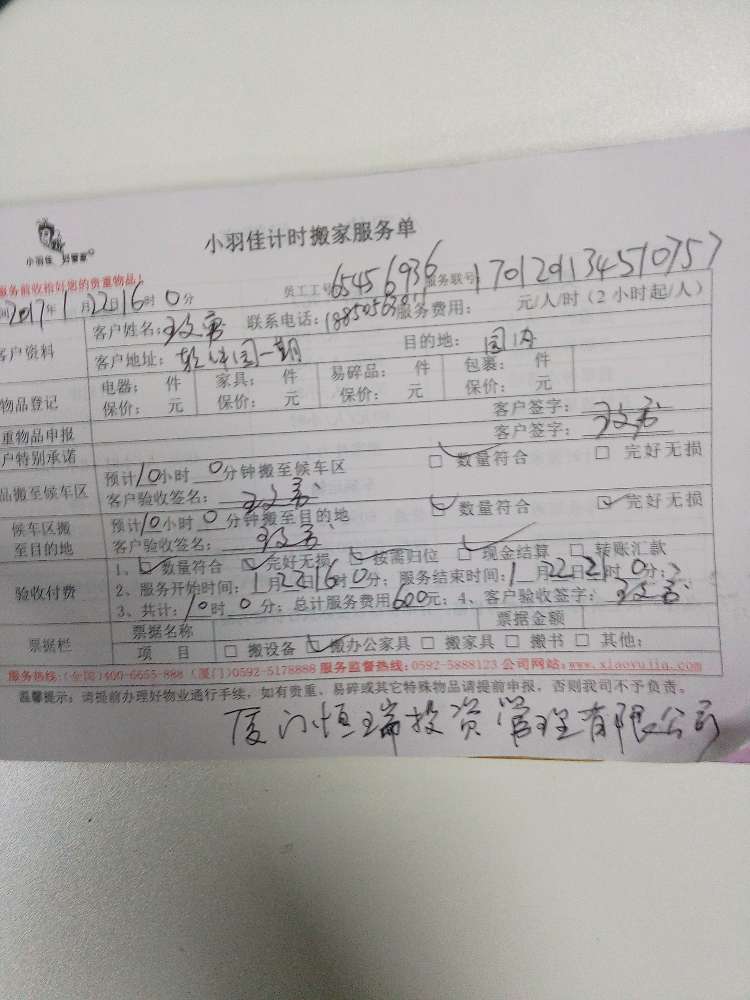 小羽佳 好管家
小羽佳计时搬家服务单
服务前收拾好您的贵重物品!
员工工号 6545 6936 服务联号 170120113451075
2017年1月22日16时0分
客户资料 客户姓名: 联系电话: 服务费用: 元/人/时(2小时起/人)
客户地址: 软件园一期 目的地: 园内
物品登记 电器: 件 家具: 件 易碎品: 件 包裹: 件
保价: 元 保价: 元 保价: 元 保价: 元
重物品申报 客户签字:
户特别承诺 客户签字:
品搬至候车区 预计10小时0分钟搬至候车区 □ 数量符合 □ 完好无损
客户验收签名:
候车区搬至目的地 预计10小时0分钟搬至目的地 □ 数量符合 □ 完好无损
客户验收签名:
验收付费 1、□ 数量符合 □ 完好无损 □ 按需归位 □ 现金结算 □ 转账汇款
2、服务开始时间:1月22日16时0分; 服务结束时间:1月22日21时0分;
3、共计:10时0分; 总计服务费用600元; 4、客户验收签字:
票据栏 票据名称 票据金额
项 目 □ 搬设备 □ 搬办公家具 □ 搬家具 □ 搬书 □ 其他:
服务热线:(全国)400-6655-888 (厦门)0592-5178888 服务监督热线:0592-5888123 公司网站:www.xiaoyujia.com
温馨提示: 请提前办理好物业通行手续,如有贵重、易碎或其它特殊物品请提前申报,否则我司不予负责。
厦门恒瑞投资管理有限公司